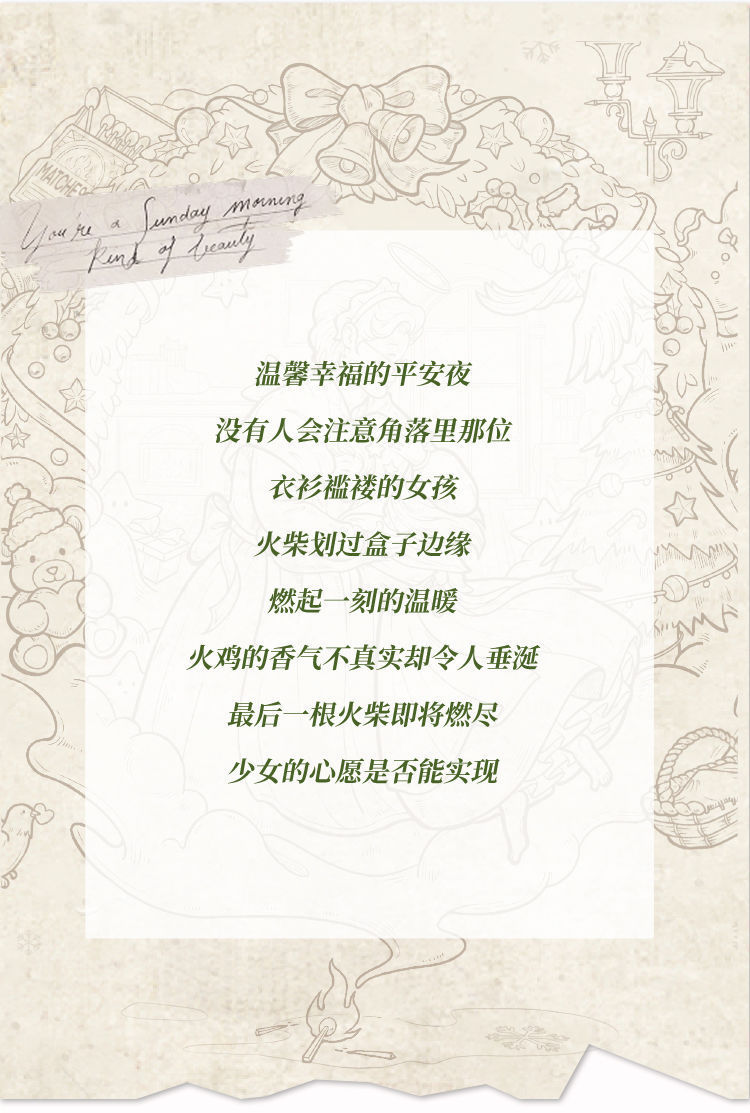 MATCHES
You're a Sunday morning
kind of beauty
温馨幸福的平安夜
没有人会注意角落里那位
衣衫褴褛的女孩
火柴划过盒子边缘
燃起一刻的温暖
火鸡的香气不真实却令人垂涎
最后一根火柴即将燃尽
少女的心愿是否能实现